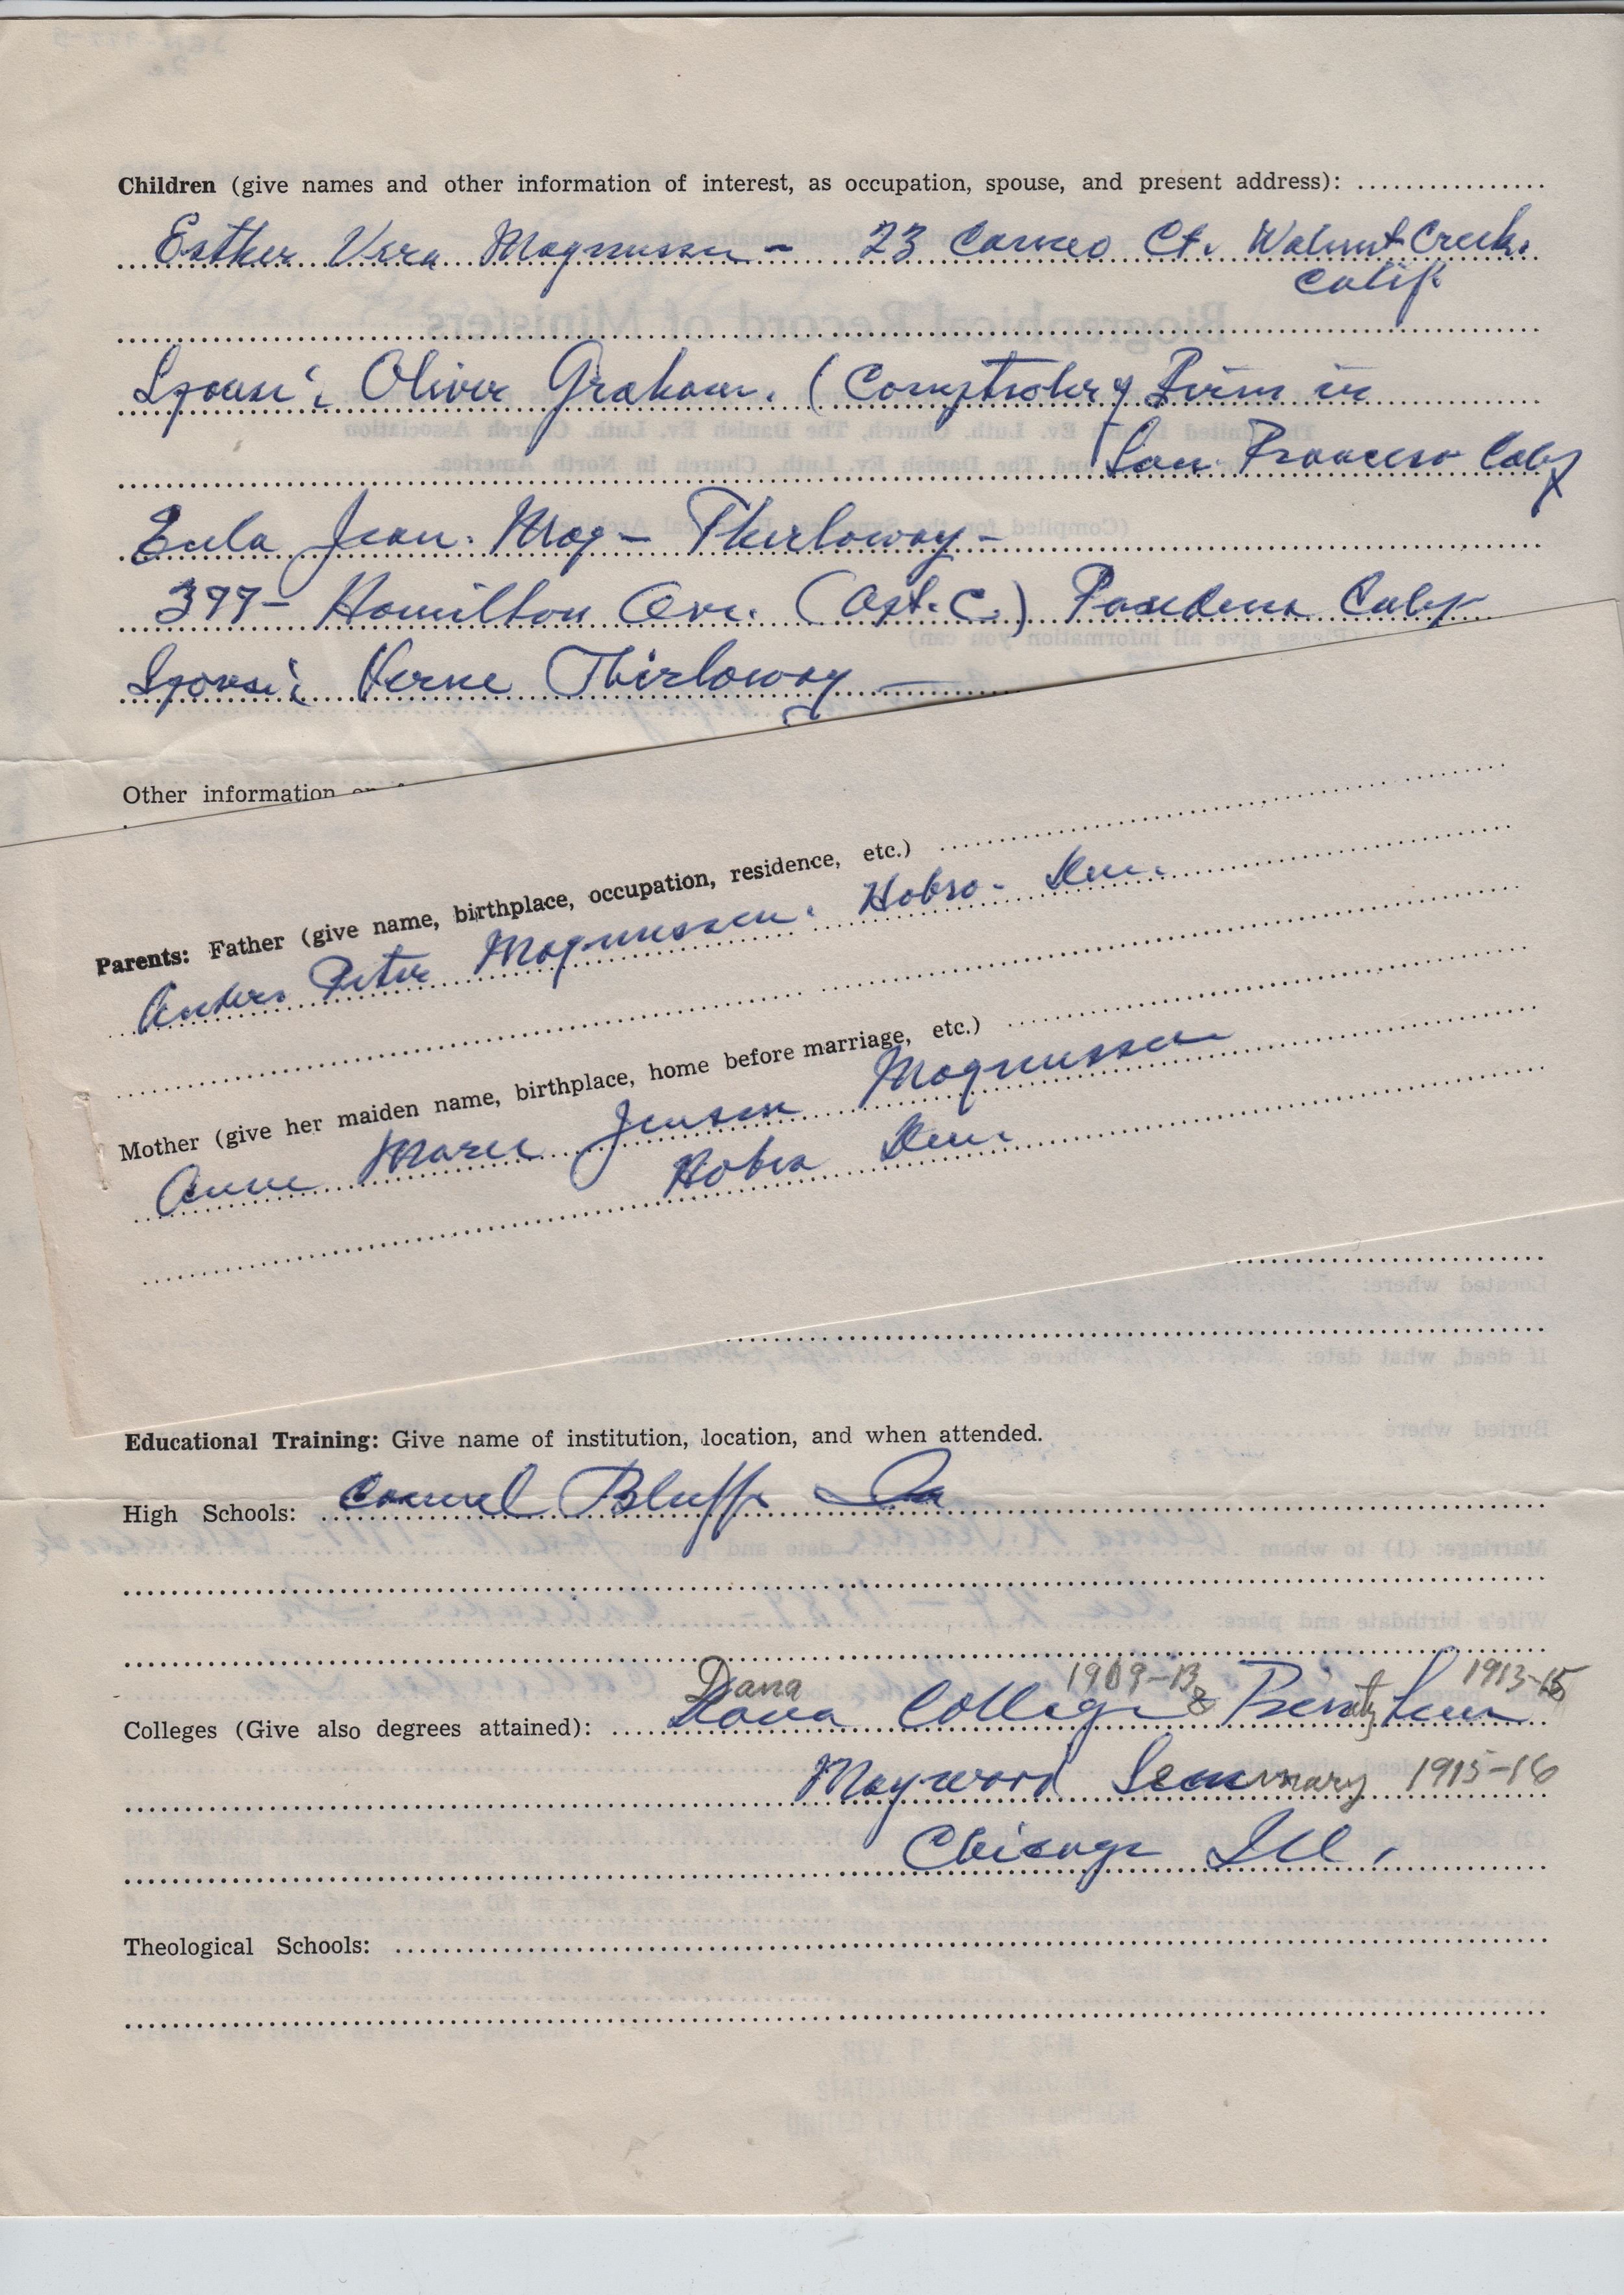 Children (give names and other information of interest, as occupation, spouse, and present address):
Esther Vera Magnussen - 23 Cameo Ct. Walnut Creek.
Calif
Spouse: Oliver Graham. (Comptroler of Firm in
San Francisco Calif
Eula Jean. Mag- Thirloway-
399- Hamilton Ave. (Apt. C.) Pasadena Calif
Spouse: Verne Thirloway
Other information on
Parents: Father (give name, birthplace, occupation, residence, etc.)
Anders Peter Magnussen. Hobro. Den.
Mother (give her maiden name, birthplace, home before marriage, etc.)
Anne Marie Jensen Magnussen
Hobro Den.
Educational Training: Give name of institution, location, and when attended.
High Schools: Council Bluffs Ia
Dana 1909-13 1913-15
Colleges (Give also degrees attained): Dana College & Trinity Sem
Maywood Seminary 1915-16
Chicago Ill.
Theological Schools: